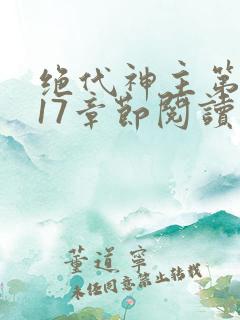 绝代神主第
17章节阅读
董道宁
未经同意禁止转载